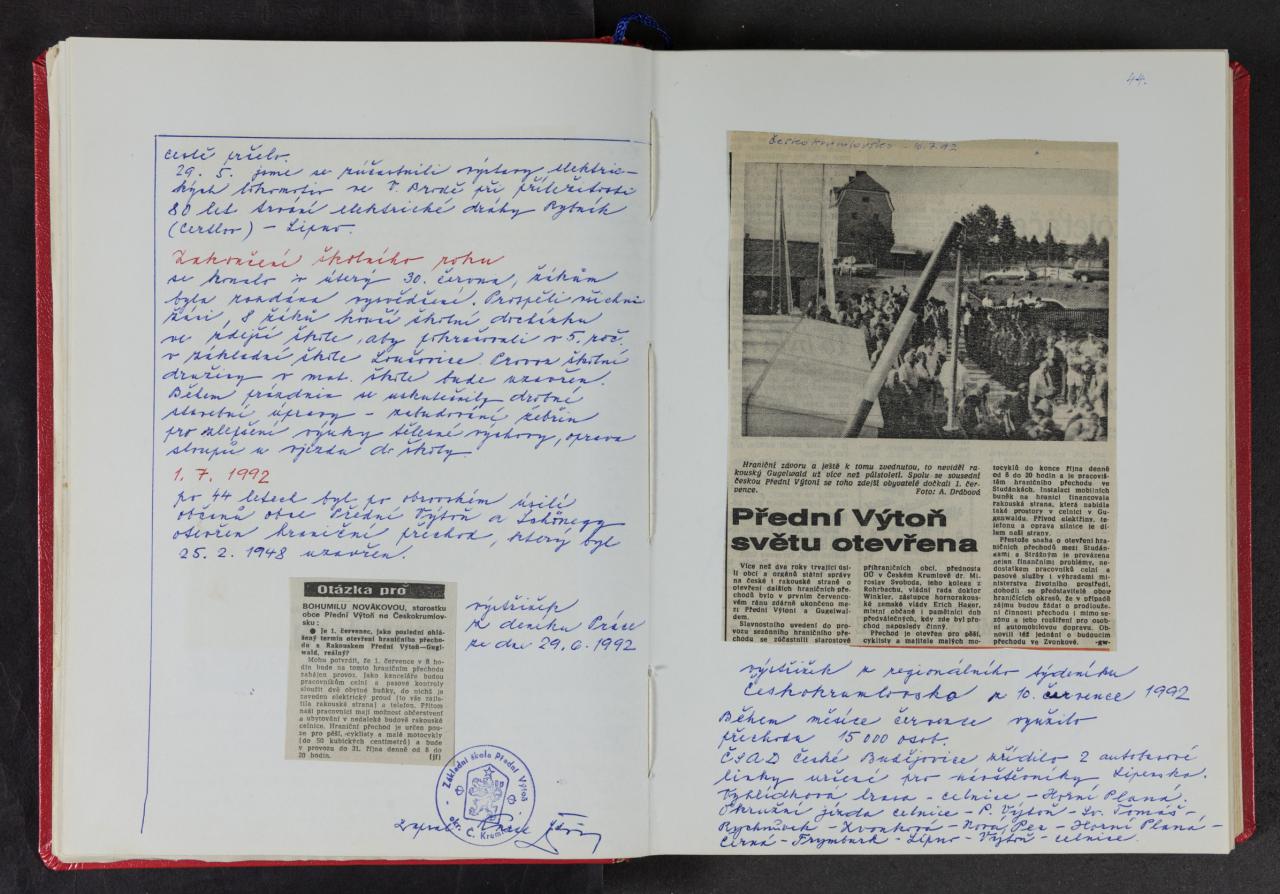 cestě pršelo.
29. 5. jsme se zúčastnili výstavy elektric-
kých lokomotiv ve V. Brodě při příležitosti
80 let trvání elektrické dráhy Rybník
(Certlov) - Lipno.
Zakončení školního roku
se konalo v úterý 30. června, žákům
bylo rozdáno vysvědčení. Prospěli všichni
žáci, 8 žáků končí školní docházku
ve zdejší škole, aby pokračovali v 5. roč.
v základní škole Loučovice. Provoz školní
družiny v mat. škole bude uzavřen.
Během prázdnin se uskuteční drobné
stavební úpravy - zabudování žebřin
pro zlepšení výuky tělesné výchovy, oprava
sloupů u vjezdu do školy.
1. 7. 1992
po 44 letech byl po obrovském úsilí
občanů obce Přední Výtoň a Schönegg
otevřen hraniční přechod, který byl
25. 2. 1948 uzavřen.
Otázka pro
BOHUMILU NOVÁKOVOU, starostku
obce Přední Výtoň na Českokrumlov-
sku:
● Je 1. červenec, jako poslední ohlá-
šený termín otevření hraničního přecho-
du s Rakouskem Přední Výtoň—Gugl-
wald, reálný?
Mohu potvrdit, že 1. července v 8 ho-
din bude na tomto hraničním přechodu
zahájen provoz. Jako kanceláře budou
pracovníkům celní a pasové kontroly
sloužit dvě obytné buňky, do nichž je
zaveden elektrický proud (to vše zajis-
tila rakouská strana) a telefon. Přitom
naši pracovníci mají možnost občerstvení
a ubytování v nedaleké budově rakouské
celnice. Hraniční přechod je určen pou-
ze pro pěší, cyklisty a malé motocykly
(do 50 kubických centimetrů) a bude
v provozu do 31. října denně od 8 do
20 hodin. (jf)
výstřižek
z deníku Práce
ze dne 29.6.1992
Základní škola Přední Výtoň
okr. Č. Krumlov
44.
Českokrumlovsko - 10.7.92
Hraniční závoru a ještě k tomu zvednutou, to neviděl ra-
kouský Gugelwald už více než půlstoletí. Spolu se sousední
českou Přední Výtoní se toho zdejší obyvatelé dočkali 1. čer-
vence. Foto: A. Drábová
Přední Výtoň
světu otevřena
Více než dva roky trvající úsi-
lí obcí a orgánů státní správy
na české i rakouské straně o
otevření dalších hraničních pře-
chodů bylo v prvním červenco-
vém ránu zdárně ukončeno me-
zi Přední Výtoní a Gugelwal-
dem.
Slavnostního uvedení do pro-
vozu sezónního hraničního pře-
chodu se zúčastnili starostové
příhraničních obcí, přednosta
OÚ v Českém Krumlově dr. Mi-
roslav Svoboda, jeho kolega z
Rohrbachu, vládní rada doktor
Winkler, zástupce hornorakous-
ké zemské vlády Erich Hager,
místní občané i pamětníci dob
předválečných, kdy zde byl pře-
chod naposledy činný.
Přechod je otevřen pro pěší,
cyklisty a majitele malých mo-
tocyklů do konce října denně
od 8 do 20 hodin a je pracoviš-
těm hraničního přechodu ve
Studánkách. Instalaci mobilních
buněk na hranici financovala
rakouská strana, která nabídla
také prostory v celnici v Gu-
genwaldu. Přívod elektřiny, te-
lefonu a oprava silnice je dí-
lem naší strany.
Přestože snaha o otevření hra-
ničních přechodů mezi Studán-
kami a Strážným je provázena
nejen finančními problémy, ne-
dostatkem pracovníků celní a
pasové služby i výhradami mi-
nisterstva životního prostředí,
dohodli se představitelé obou
hraničních okresů, že v případě
zájmu budou žádat o prodlouže-
ní činnosti přechodu i mimo se-
zónu a jeho rozšíření pro osob-
ní automobilovou dopravu. Ob-
novili též jednání o budoucím
přechodu ve Zvonkové. -gw-
výstřižek z regionálního týdeníku
Českokrumlovsko z 10. července 1992
Během měsíce července využilo
přechodu 15 000 osob.
ČSAD České Budějovice zřídilo 2 autobusové
linky určené pro návštěvníky Lipenska.
Vyhlídková trasa - celnice - Horní Planá,
Okružní jízda celnice - P. Výtoň - Sv. Tomáš -
Rychnůvek - Zvonková - Nová Pec - Horní Planá -
Černá - Frymburk - Lipno - Výtoň - celnice.